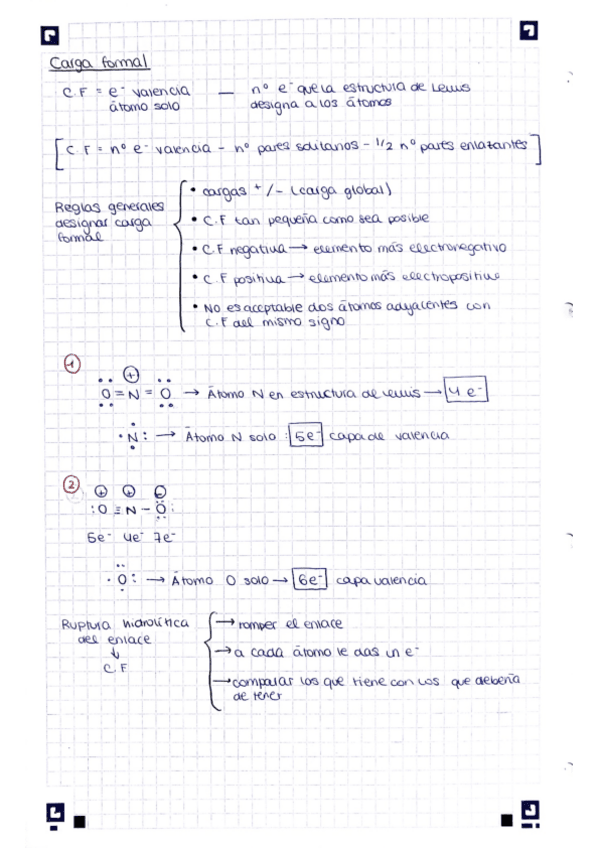 Carga formal
C.F = e⁻ valencia — nº e⁻ que la estructura de Lewis
átomo solo designa a los átomos
[C.F = nº e⁻ valencia - nº pares solitarios - 1/2 nº pares enlazantes]
Reglas generales
designar carga
formal
• cargas +/- (carga global)
• C.F tan pequeña como sea posible
• C.F negativa → elemento más electronegativo
• C.F positiva → elemento más electropositivo
• No es aceptable dos átomos adyacentes con
C.F del mismo signo
①
⊕
O = N = O → Átomo N en estructura de Lewis → 4 e⁻
· N : → Átomo N solo : 5e⁻ capa de valencia
②
⊕ ⊕ ⊖
:O ≡ N - O:
5e⁻ 4e⁻ 7e⁻
· O : → Átomo O solo → 6e⁻ capa valencia
Ruptura hidrolítica
del enlace
↓
C.F
→ romper el enlace
→ a cada átomo le das un e⁻
→ comparar los que tiene con los que debería
de tener